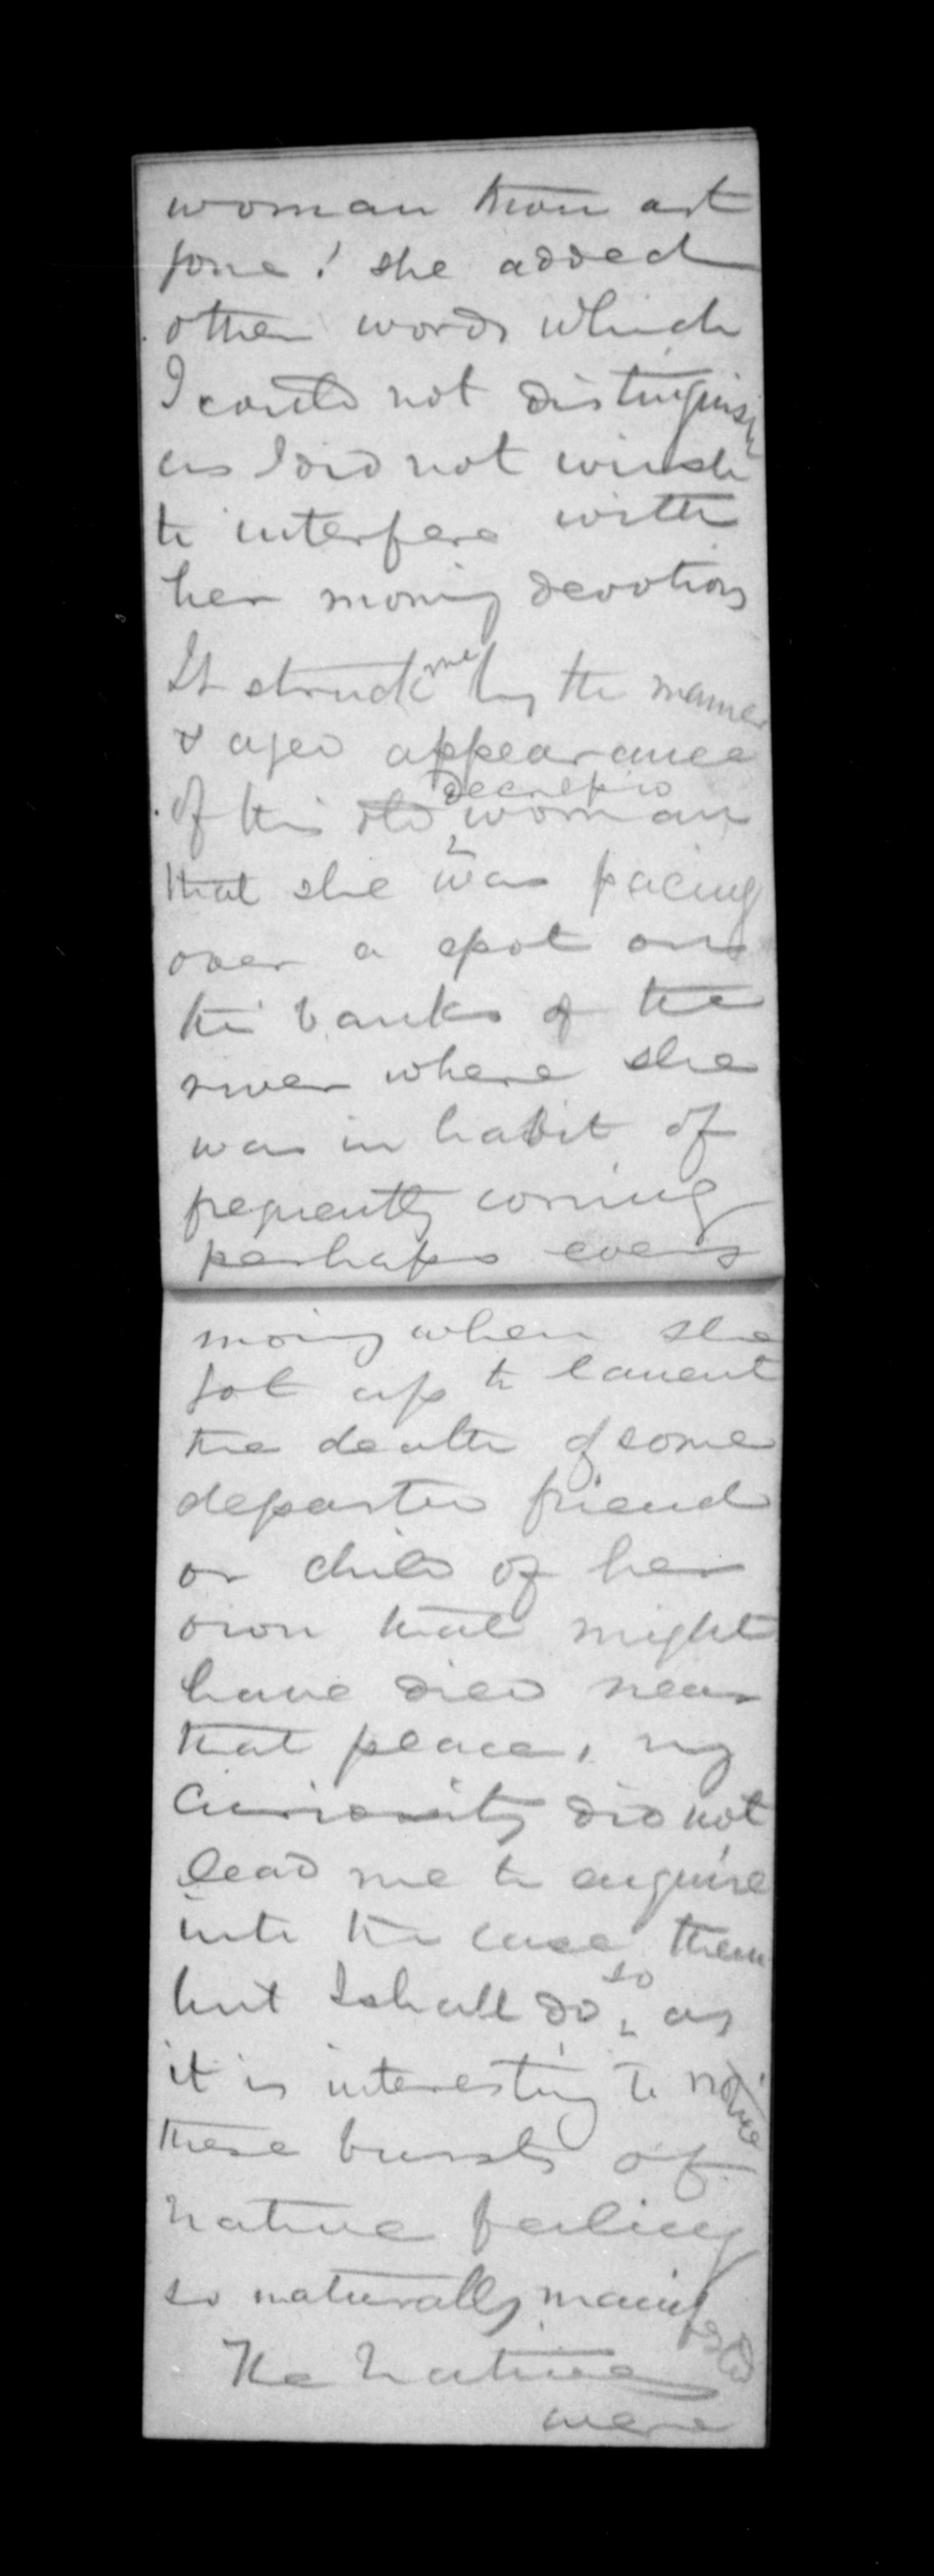 woman thou art
gone! she added
other words which
I could not distinguish
as I did not wish
to interfere with
her morning devotions
It struck me by the manner
& aged appearance
of this old decrepid woman
that she was pacing
over a spot on
the banks of the
river where she
was in habit of
frequently coming
perhaps every
morning when she
got up to lament
the death of some
departed friend
or child of her
own that might
have died near
that place, my
curiosity did not
lead me to enquire
into the case then
but I shall do so, as
it is interesting to notice
these bursts of
native feeling
so naturally manifested
The Natives
were